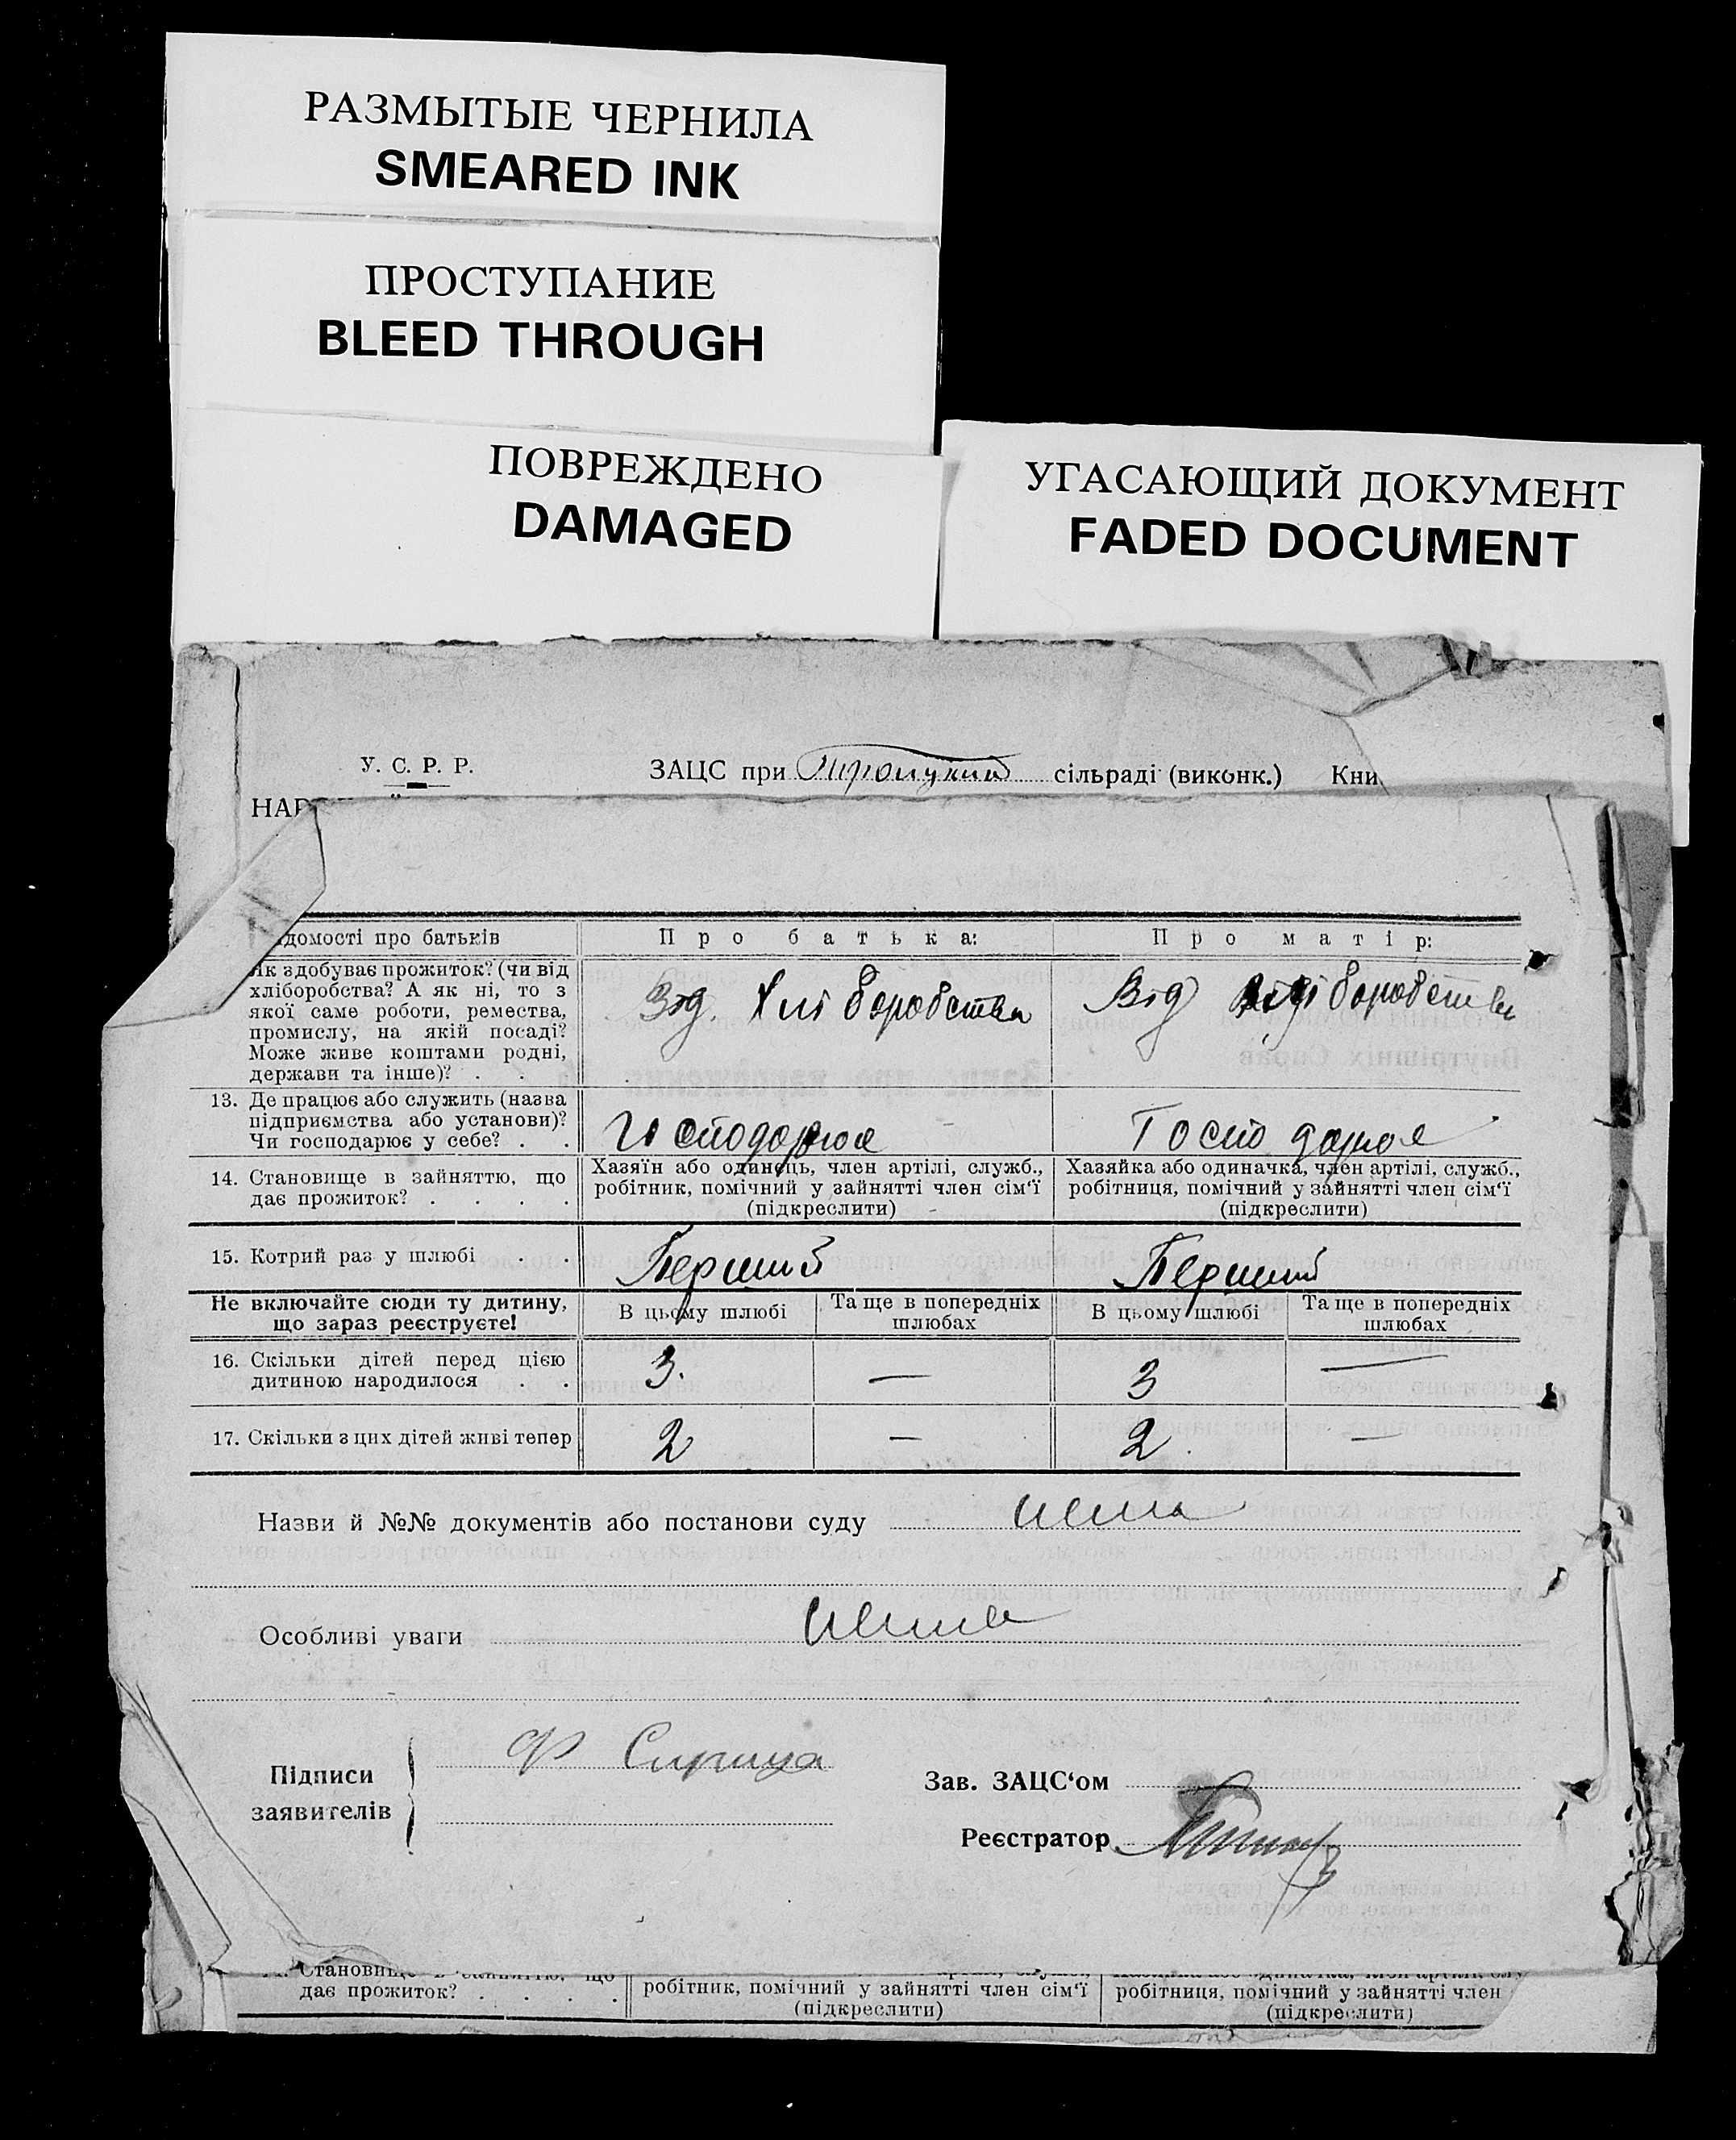 РАЗМЫТЫЕ ЧЕРНИЛА
SMEARED INK
ПРОСТУПАНИЕ
BLEED THROUGH
ПОВРЕЖДЕНО
DAMAGED
УГАСАЮЩИЙ ДОКУМЕНТ
FADED DOCUMENT
У. С. Р. Р.
ЗАЦС при Троицкий сільраді (виконк.) Кни
НАР
ідомості про батьків
Про батька:
Про матір:
Як здобуває прожиток? (чи від
хліборобства? А як ні, то з
якої саме роботи, ремества,
промислу, на якій посаді?
Може живе коштами родні,
держави та інше)? . .
Від Хліборобства
Від боробства
13. Де працює або служить (назва
підприємства або установи)?
Чи господарює у себе? . .
Господарює
Господарює
14. Становище в зайняттю, що
дає прожиток? . . . .
Хазяїн або одинець, член артілі, служб.,
робітник, помічний у зайнятті член сім‘ї
(підкреслити)
Хазяйка або одиначка, член артілі, служб.,
робітниця, помічний у зайнятті член сім‘ї
(підкреслити)
15. Котрий раз у шлюбі . .
Перший
Перший
Не включайте сюди ту дитину,
що зараз реєструєте!
В цьому шлюбі
Та ще в попередніх
шлюбах
В цьому шлюбі
Та ще в попередніх
шлюбах
16. Скільки дітей перед цією
дитиною народилося . .
3. — 3 —
17. Скільки з цих дітей живі тепер
2 — 2. —
Назви й №№ документів або постанови суду нема
Особливі уваги нема
Підписи
заявителів
Ф Сириця
Зав. ЗАЦС‘ом
Реєстратор
Становище в зайняттю, що
дає прожиток? . . . .
робітник, помічний у зайнятті член сім‘ї
(підкреслити)
робітниця, помічний у зайнятті член
(підкреслити)